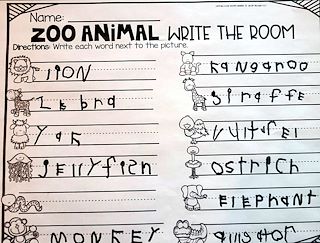 Name:
ZOO ANiMAL WRITE THE ROOM
Directions: Write each word next to the picture.
lION
kangaroo
Zebra
giraffe
Yak
Jellyfish
ostrich
ElEphant
MONKEY